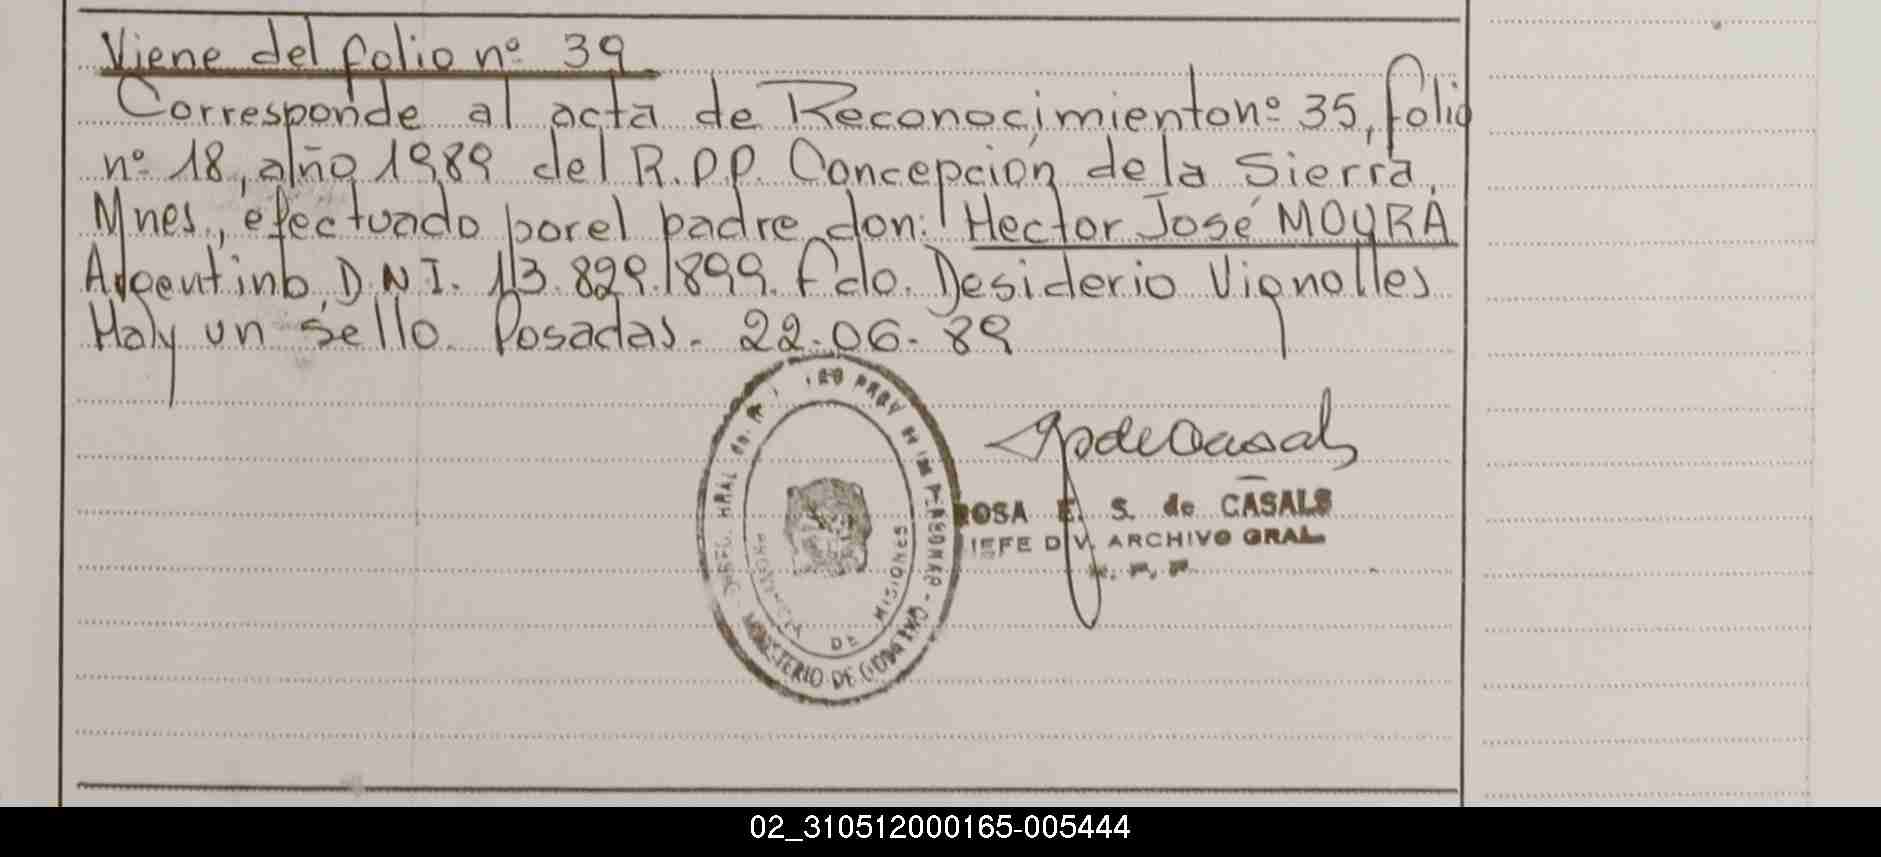 Viene del folio nº 39
Corresponde al acta de Reconocimiento nº 35, folio
nº 18, año 1989 del R.P.P. Concepción de la Sierra,
Mnes, efectuado por el padre don: Hector José MOURA
Argentino, D.N.I. 13.829.899. Fdo. Desiderio Vignolles
Hay un sello. Posadas. 22.06.89
ROSA E. S. de CASALS
JEFE DIV. ARCHIVO GRAL.
R. P. P.
PROVINCIA DE MISIONES
MINISTERIO DE
02_310512000165-005444